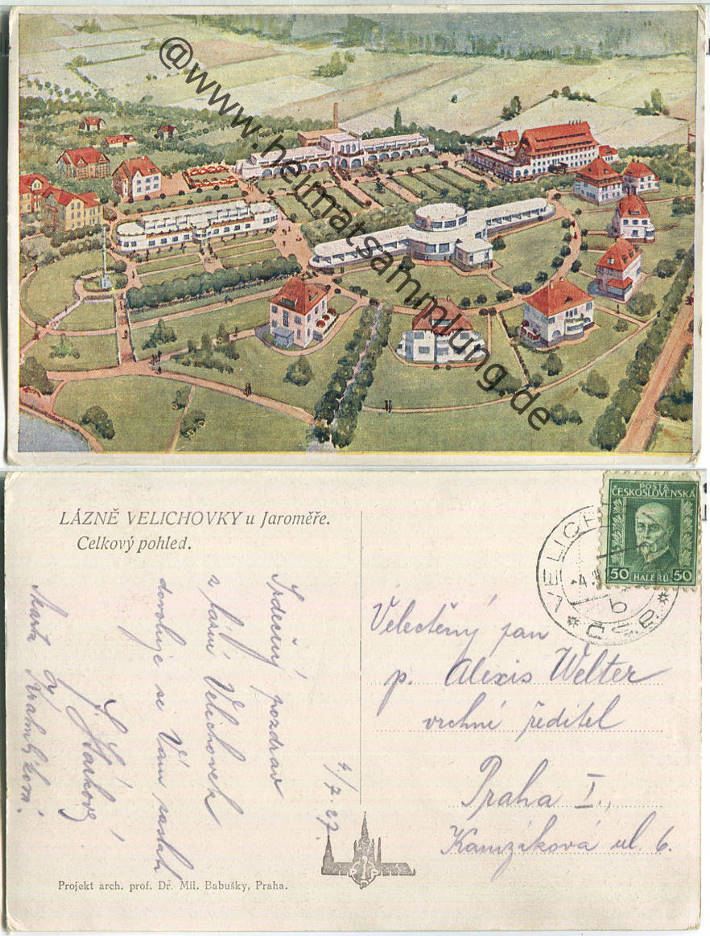 @www.heimatsammlung.de
LÁZNĚ VELICHOVKY u Jaroměře.
Celkový pohled.
POŠTA
ČESKOSLOVENSKÁ
50 HALÉŘŮ 50
Srdečný pozdrav
z lázní Velichovek
dovoluje se Vám zaslati
4/7.27.
Velectěný pan
p. Alexis Welter
vrchní ředitel
Praha I.,
Kamzíková ul 6.
Projekt arch. prof. Dř. Mil. Babušky, Praha.